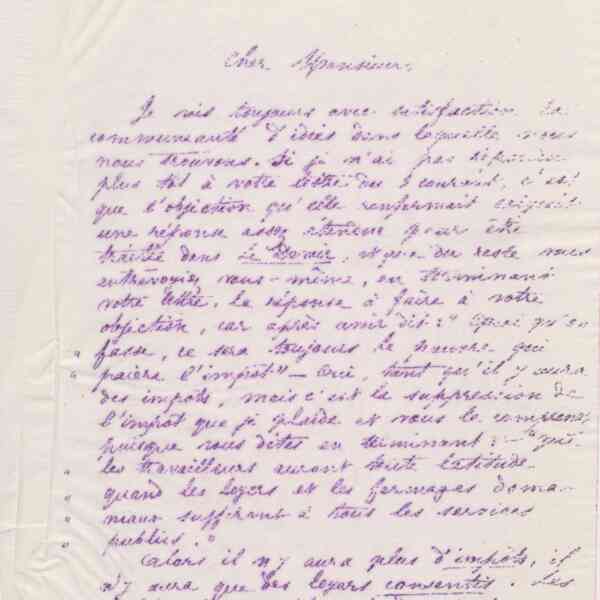 Cher Monsieur,
Je vois toujours avec satisfaction la
communauté d'idées dans laquelle nous
nous trouvons. Si je n'ai pas répondu
plus tôt à votre lettre du 3 courant, c'est
que l'objection qu'elle renfermait exigeait
une réponse assez étendue pour être
traitée dans Le Devoir, et que du reste vous
entrevoyiez vous-même, en terminant
votre lettre, la réponse à faire à votre
objection, car après avoir dit : " Quoi qu'on
" fasse, ce sera toujours le pauvre qui
" paiera l'impôt " — Oui, tant qu'il y aura
des impôts, mais c'est la suppression de
l'impôt que je plaide et vous le comprenez
puisque vous dites en terminant : — "
" les travailleurs auront toute latitude
" quand les loyers et les fermages doma-
" niaux suffiront à tous les services
" publics. "
Alors il n'y aura plus d'impôts, il
n'y aura que des loyers consentis. Les